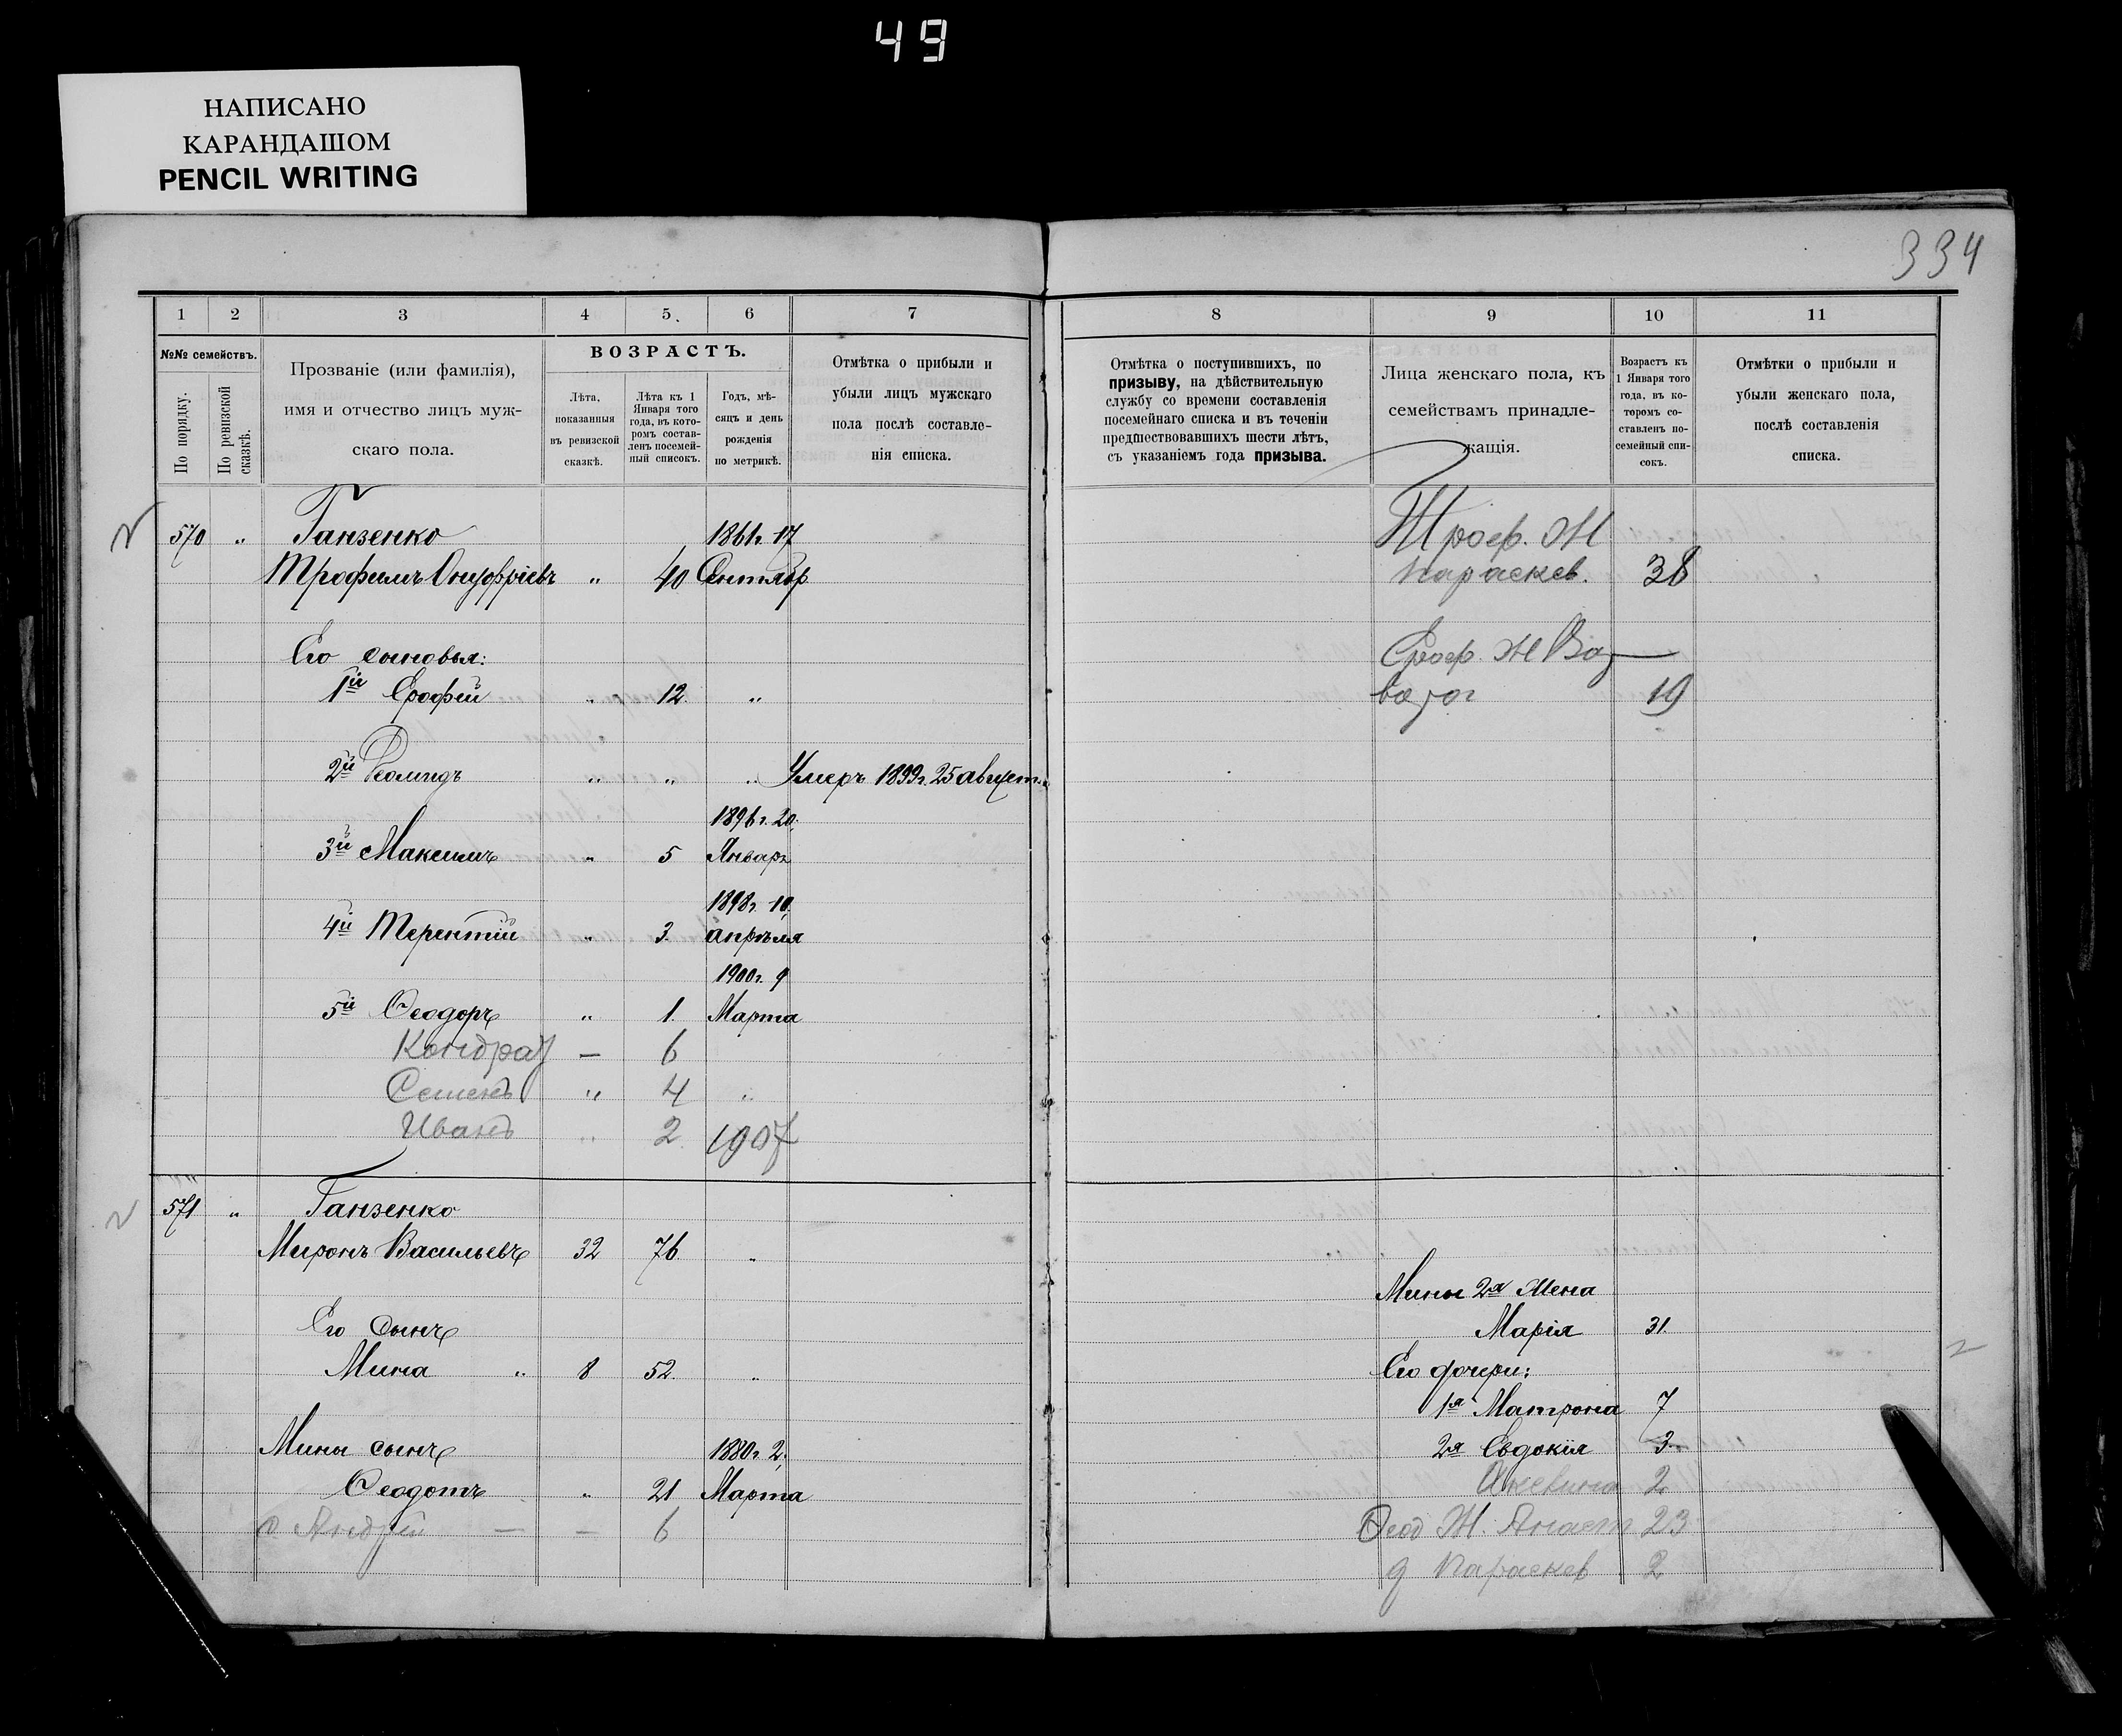 49
НАПИСАНО
КАРАНДАШОМ
PENCIL WRITING
334
1 2 3 4 5. 6 7
№№ семействъ.
По порядку.
По ревизской сказкѣ.
Прозваніе (или фамилія),
имя и отчество лицъ муж-
скаго пола.
ВОЗРАСТЪ.
Лѣта,
показанныя
въ ревизской
сказкѣ.
Лѣта къ 1
Января того
года, въ кото-
ромъ состав-
ленъ посемей-
ный список.
Годъ, мѣ-
сяцъ и день
рожденія
по метрикѣ.
Отмѣтка о прибыли и
убыли лицъ мужскаго
пола послѣ составле-
нія списка.
570 " Ганзенко 1861г. 17
Трофимъ Онуфріевъ " 40 Сентябр
Его сыновья:
1й Ерофей " 12. "
2й Леонидъ " " " Умеръ 1899г. 25 август.
1896г. 20.
3й Максимъ " 5 Январ
1898г. 10.
4й Терентій " 3. апрѣля
1900г. 9
5й Ѳеодоръ " 1. Марта
Кондрат — 6
Семенъ " 4 "
Иванъ " 2 1907
571 " Ганзенко
Миронъ Васильевъ 32 76 "
Его сынъ
Мина " 8 52. "
Мины сынъ 1880г. 2.
Ѳеодотъ " 21 Марта
с Андрей — — 6
8 9 10 11
Отмѣтка о поступившихъ, по
призыву, на дѣйствительную
службу со времени составленія
посемейнаго списка и въ теченіи
предшествовавшихъ шести лѣтъ,
съ указаніемъ года призыва.
Лица женскаго пола, къ
семействамъ принадле-
жащія.
Возрастъ къ
1 Января того
года, въ ко-
торомъ со-
ставленъ по-
семейный спи-
сокъ.
Отмѣтки о прибыли и
убыли женскаго пола,
послѣ составленія
списка.
Троф. Ж
Параскев. 38
Ероф. Ж
19
Мины 2я Жена
Марія 31.
Его дочери:
1я Матрона 7
2я Евдокія 3
2
Ѳеод Ж. Анаст 23
д Параскев 2